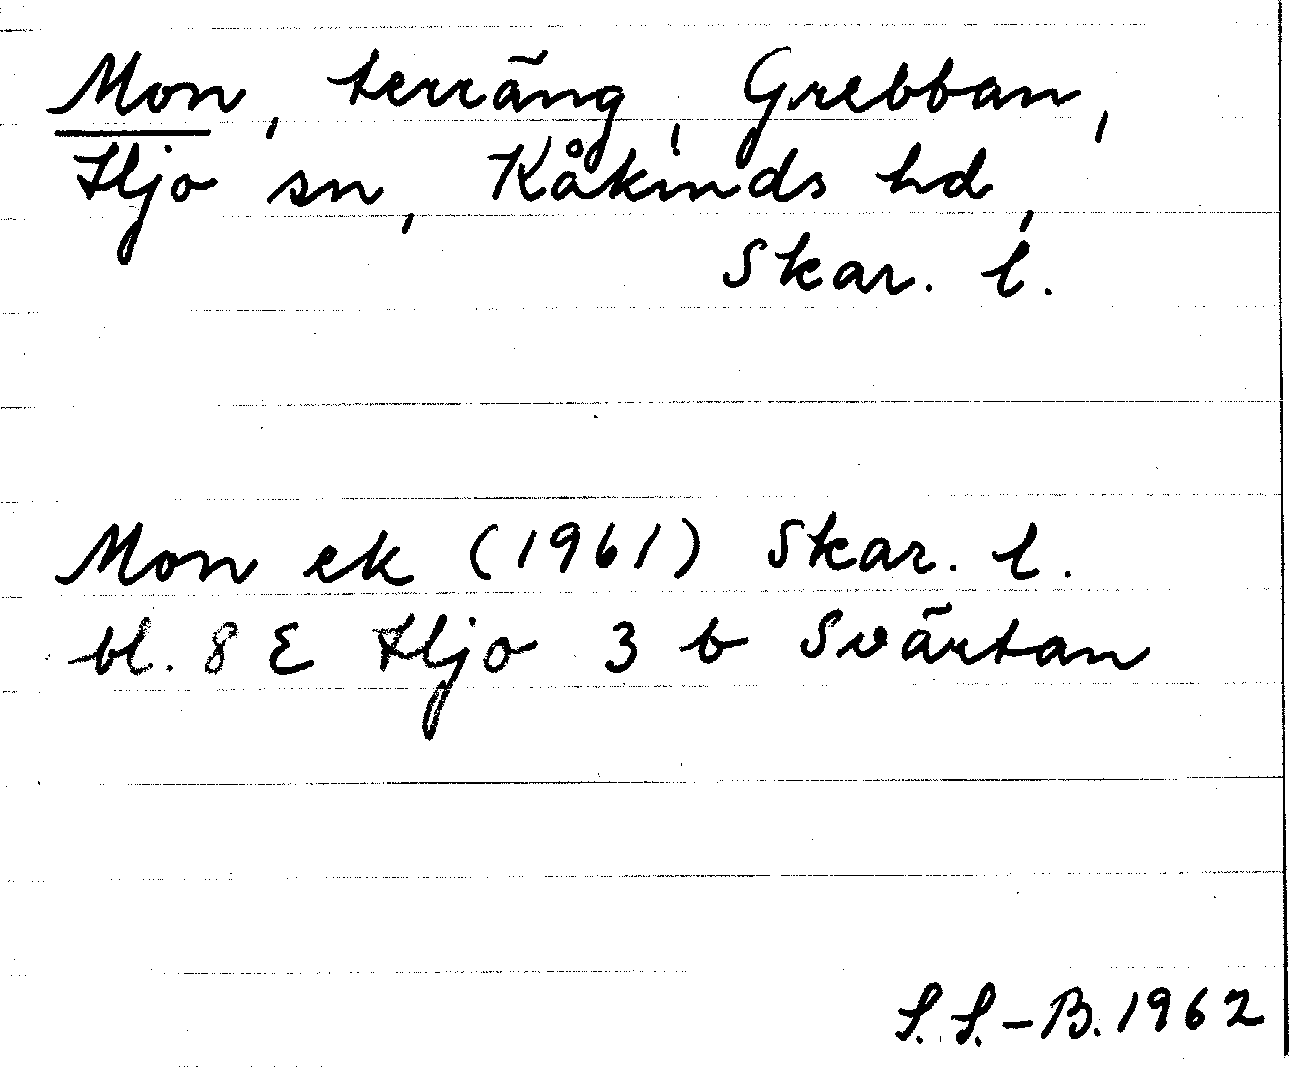 Mon, terräng, Grebban,
Hjo sn, Kåkinds hd,
Skar. l.
Mon ek (1961) Skar. l.
bl. 8 E Hjo 3 b Svärtan
S. S.-B. 1962